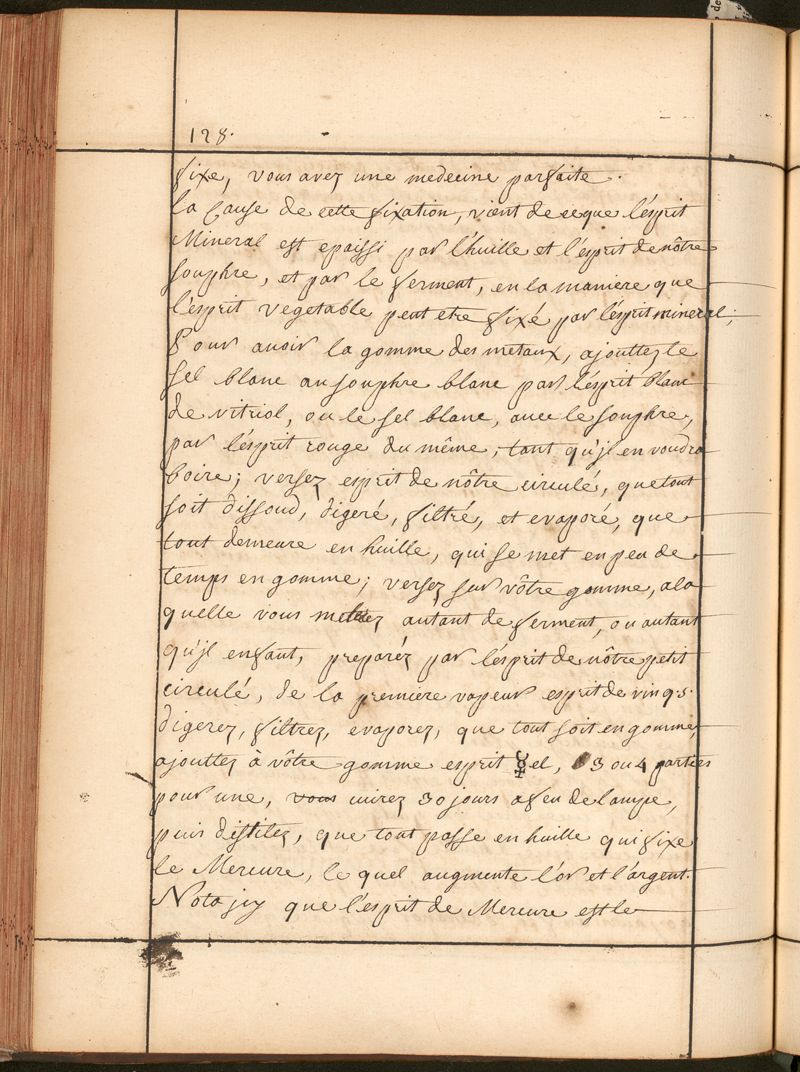 128.
fixe, vous avez une medecine parfaite.
la Cause de cette fixation, vient de ce que l'ésprit
Mineral est epaissi par l'huille et l'ésprit de nôtre
souphre, et par le ferment, en la maniere que
l'ésprit vegetable peut etre fixé par l'ésprit mineral;
Pour avoir la gomme des metaux, ajouttez le
sel blanc au souphre blanc par l'ésprit blanc
de vitriol, ou le sel blanc, avec le souphre,
par l'ésprit rouge du même, tant qu'jl en voudra
boire; versez esprit de nôtre circulé, que tout
soit dissoud, digeré, filtré, et evaporé, que
tout demeure en huille, qui se met en peu de
temps en gomme; versez sur vôtre gomme, a la
quelle vous mettez autant de ferment, ou autant
qu'jl en faut, preparéz par l'ésprit de nôtre petit
circulé, de la premiere vapeur esprit de vin q.s.
digerez, filtrez, evaporez, que tout soit en gomme,
ajouttez à vôtre gomme esprit ☿el, 3 ou 4 parties
pour une, vous cuirez 30 jours a feu de lampe,
puis distilez, que tout passe en huille qui fixe
le Mercure, le quel augmente l'or et l'argent.
Nota jcy que l'ésprit de Mercure est le